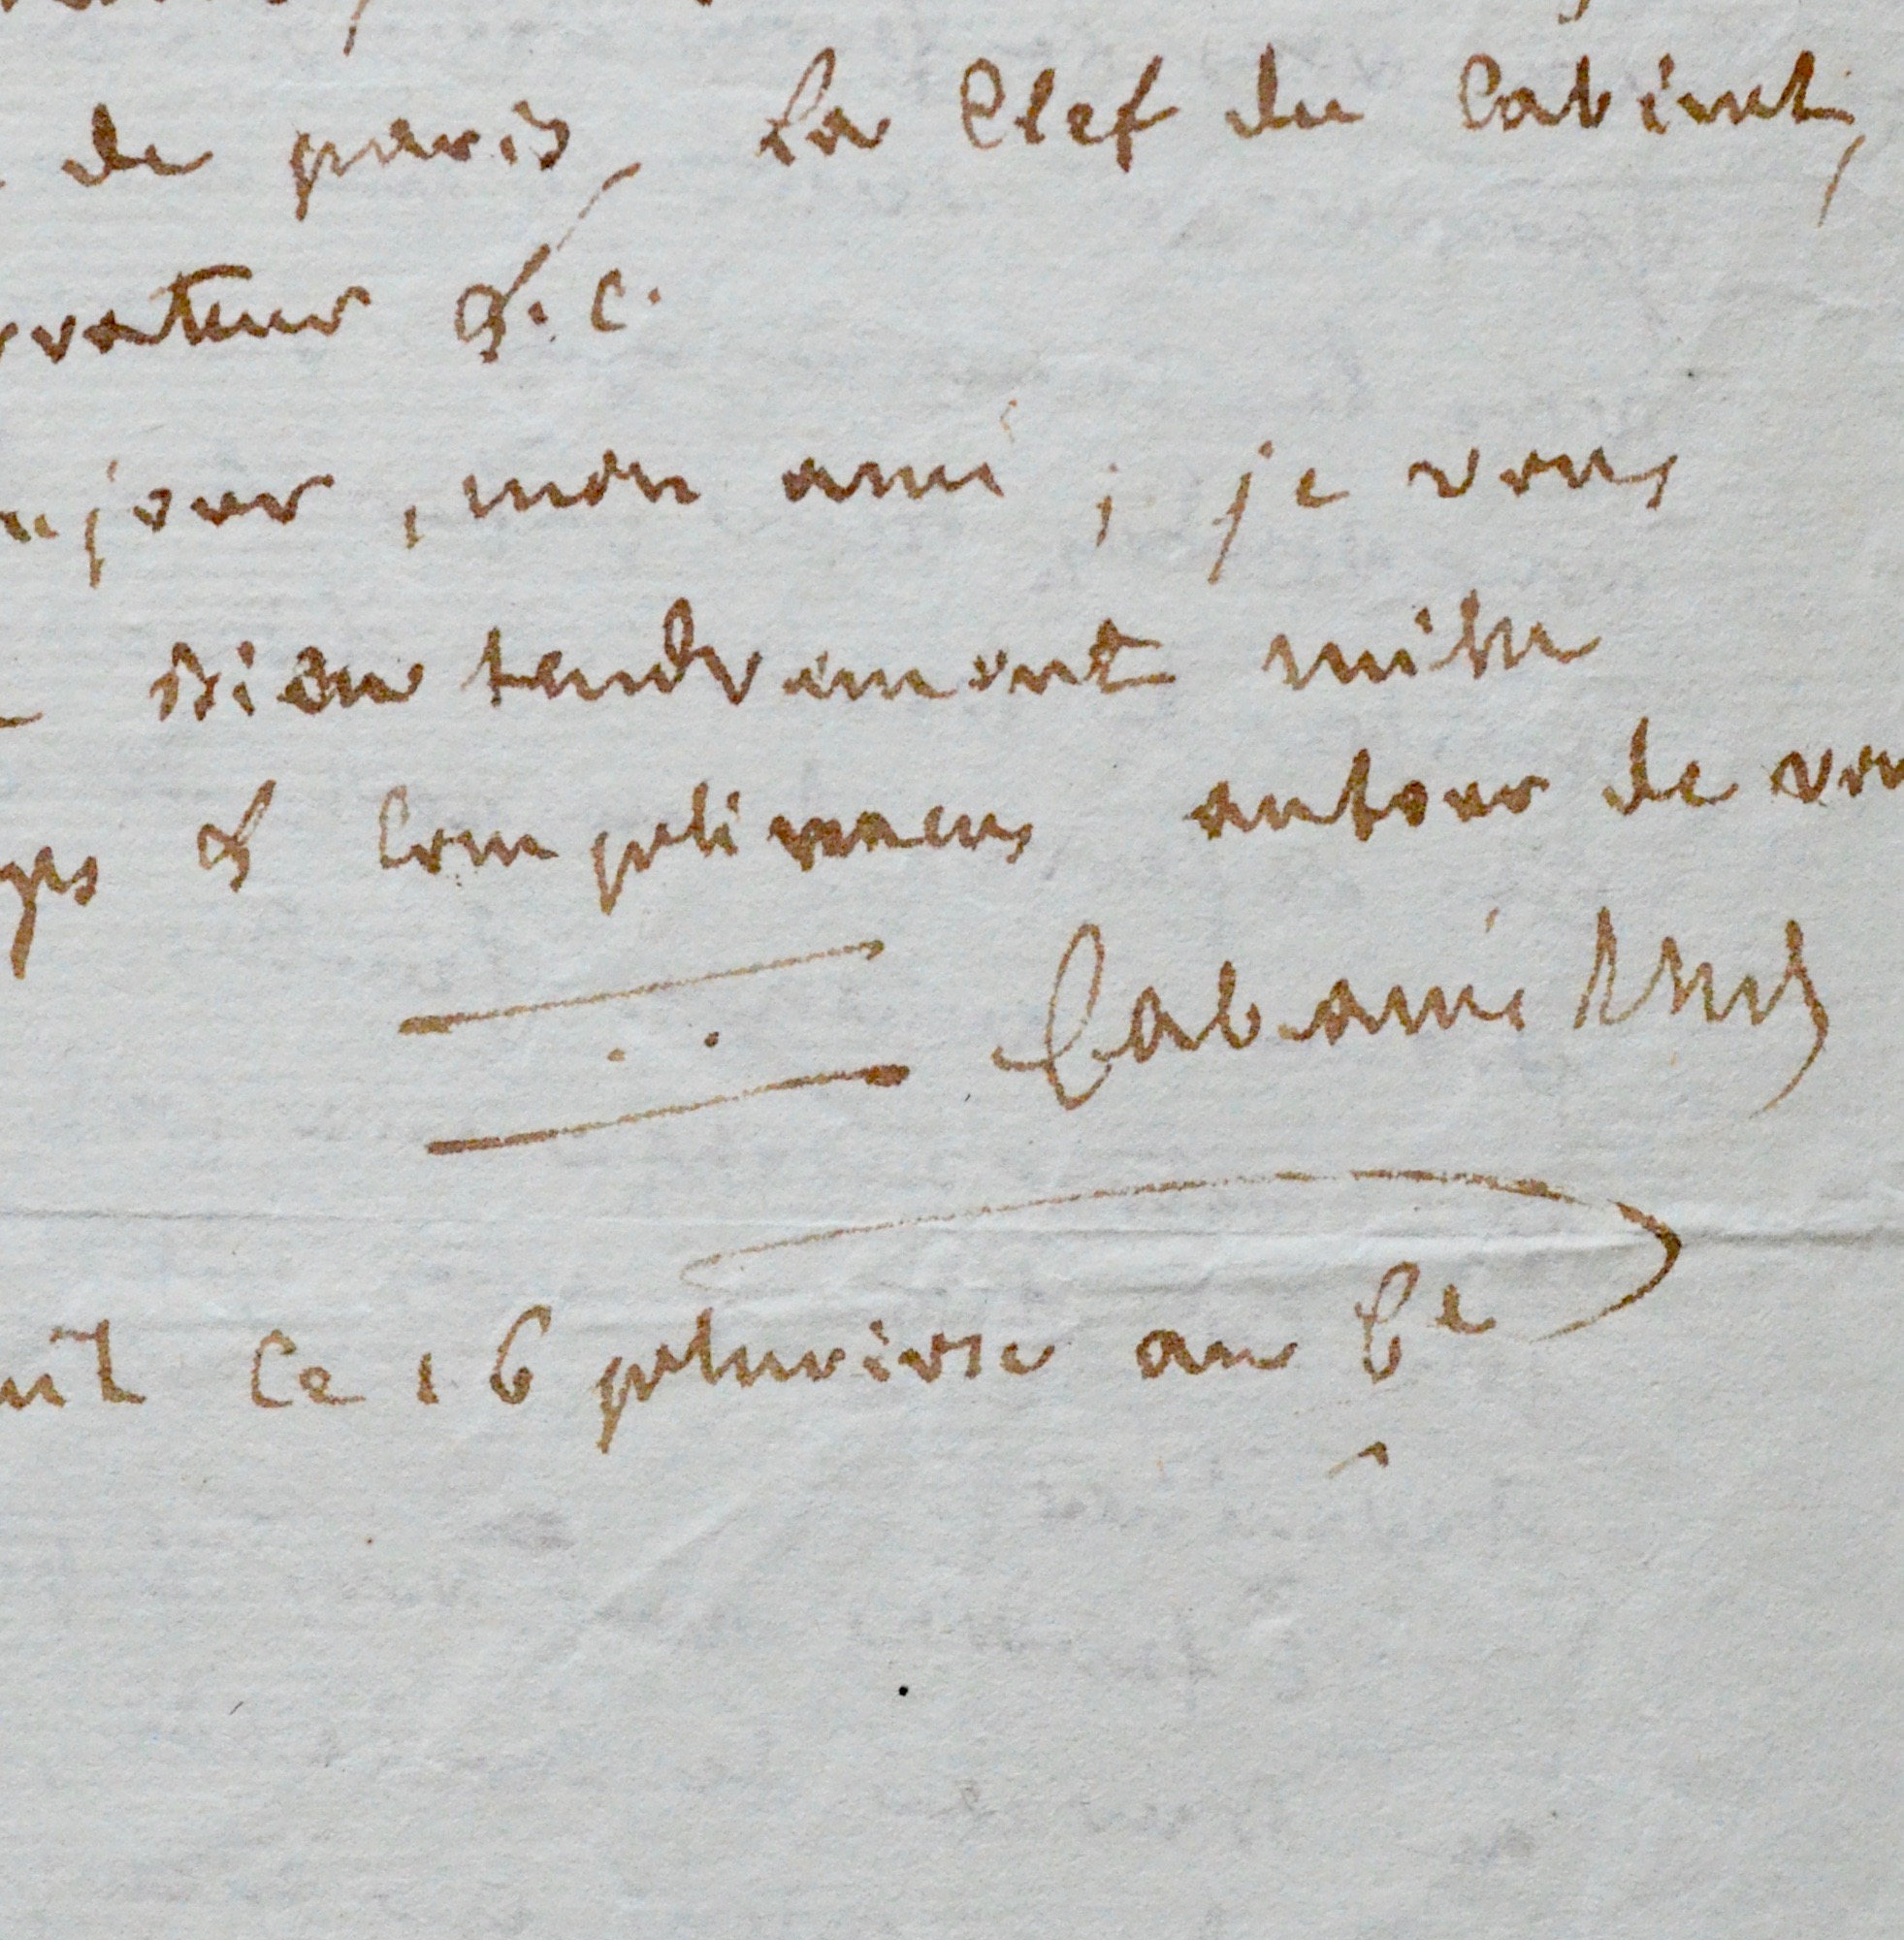 de paris, la Clef du Cabinet,
rvateur &. c.
njour, mon ami ; je vous
bien tendrement mille
& Complimens autour de vou
Cabanis
uil Ce 16 pluviose an 6e